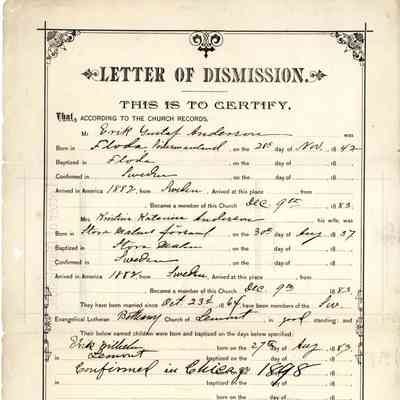 LETTER OF DISMISSION.
THIS IS TO CERTIFY,
That, ACCORDING TO THE CHURCH RECORDS,
Mr Erik Gustaf Anderson was
Born in Floda, on the 28th day of Nov. 1842
Baptized in Floda on the day of 18
Confirmed in Sweden on the day of 18
Arrived in America 1882 from Sweden. Arrived at this place , from
Became a member of this Church Dec. 9th 1883.
Mrs. Kristina Katarina Anderson his wife, was
Born in Stora Malm on the 30th day of Aug 1837
Baptized in Stora Malm on the day of 18
Confirmed in Sweden on the day of 18
Arrived in America 1882 from Sweden. Arrived at this place , from
Became a member of this Church Dec 9th 1883
They have been married since Oct 23d 1864 have been members of the Sw.
Evangelical Lutheran Bethany Church of Lemont in good standing; and
Their below named children were born and baptized on the days below specified:
Erik Wilhelm born on the 27th day of Aug 1883
in Lemont baptized the day of 18
Confirmed in Chicago 1898
in baptized the day of
born on the day of 18